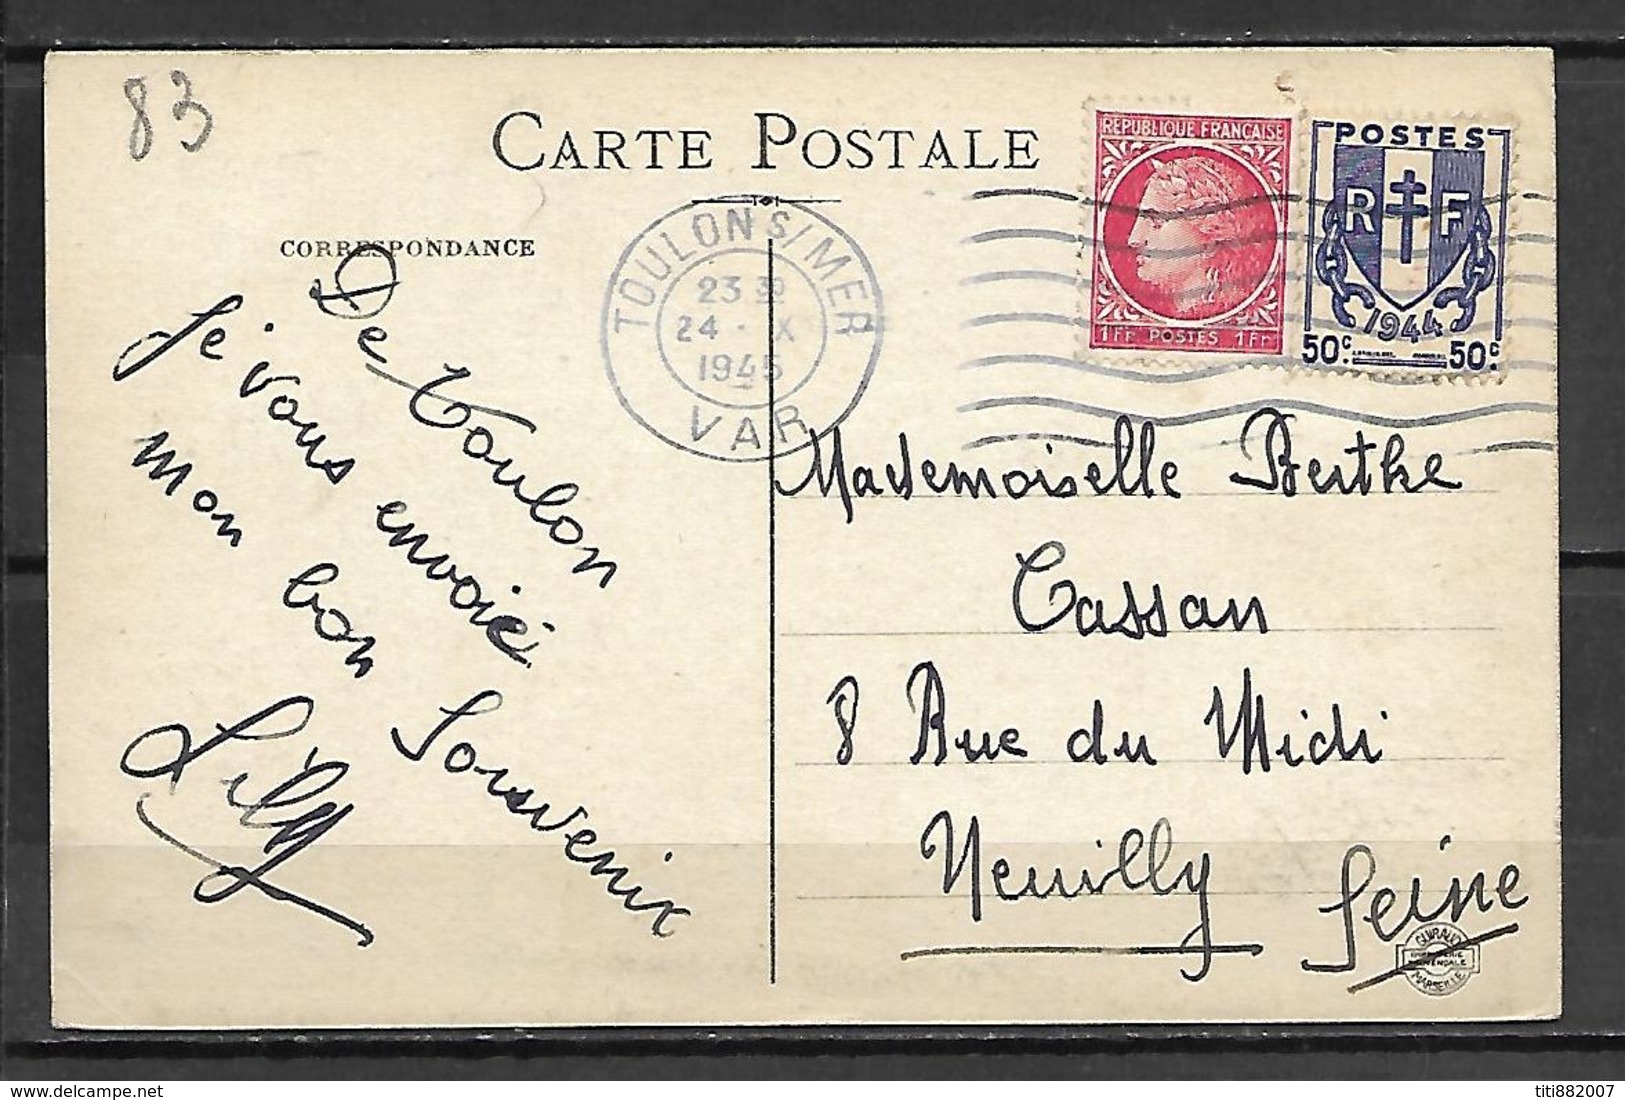 83
CARTE POSTALE
CORRESPONDANCE
REPUBLIQUE FRANÇAISE
1Fr POSTES 1Fr
POSTES
R F
1944
50c. 50c.
TOULON S/MER
23 30
24 - X
1945
VAR
De Toulon
je vous envoie
mon bon Souvenir
Lily
Mademoiselle Berthe
Cassan
8 Rue du Midi
Neuilly Seine
GUIRAUD
MARSEILLE
titi882007